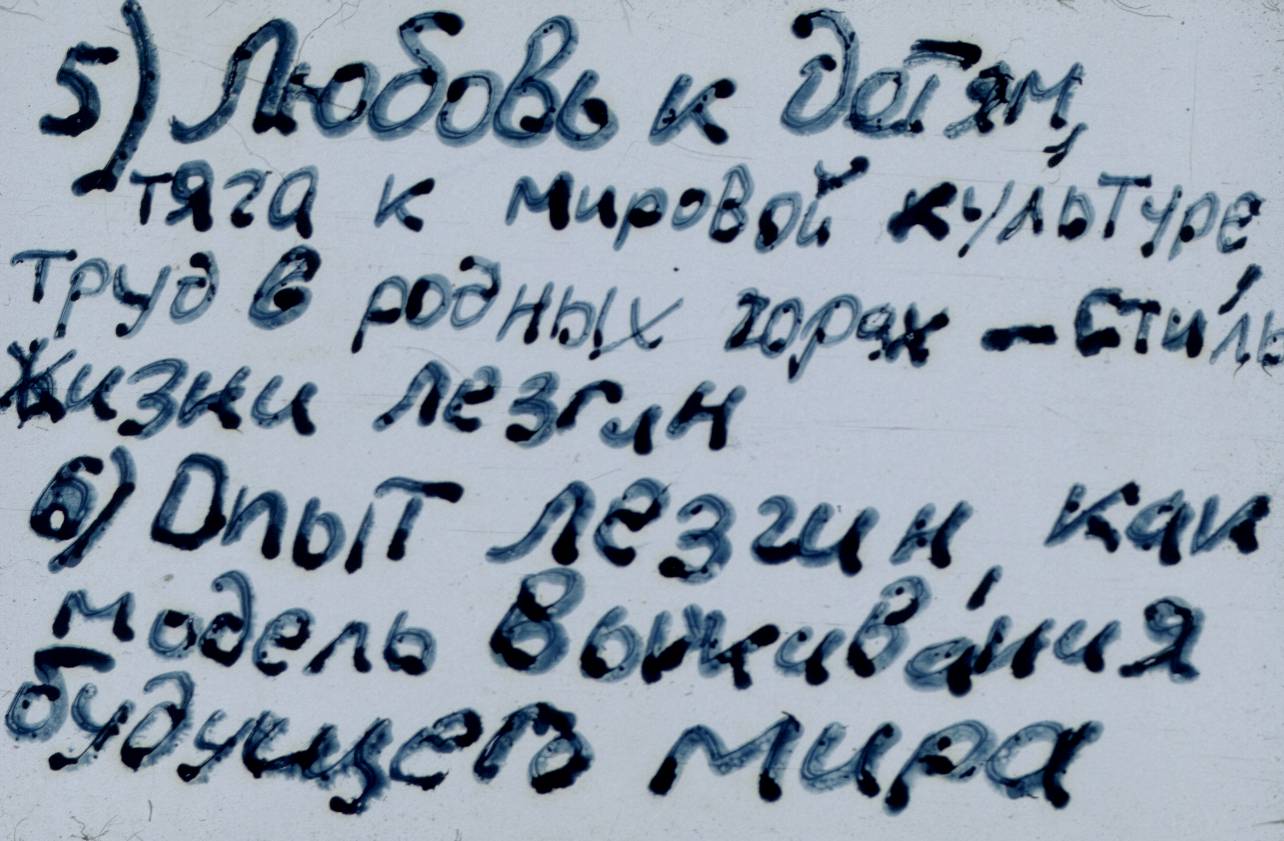 5) Любовь к детям,
тяга к мировой культуре,
труд в родных горах – стиль
жизни лезгин
6) Опыт лезгин, как
модель выживания
будущего мира